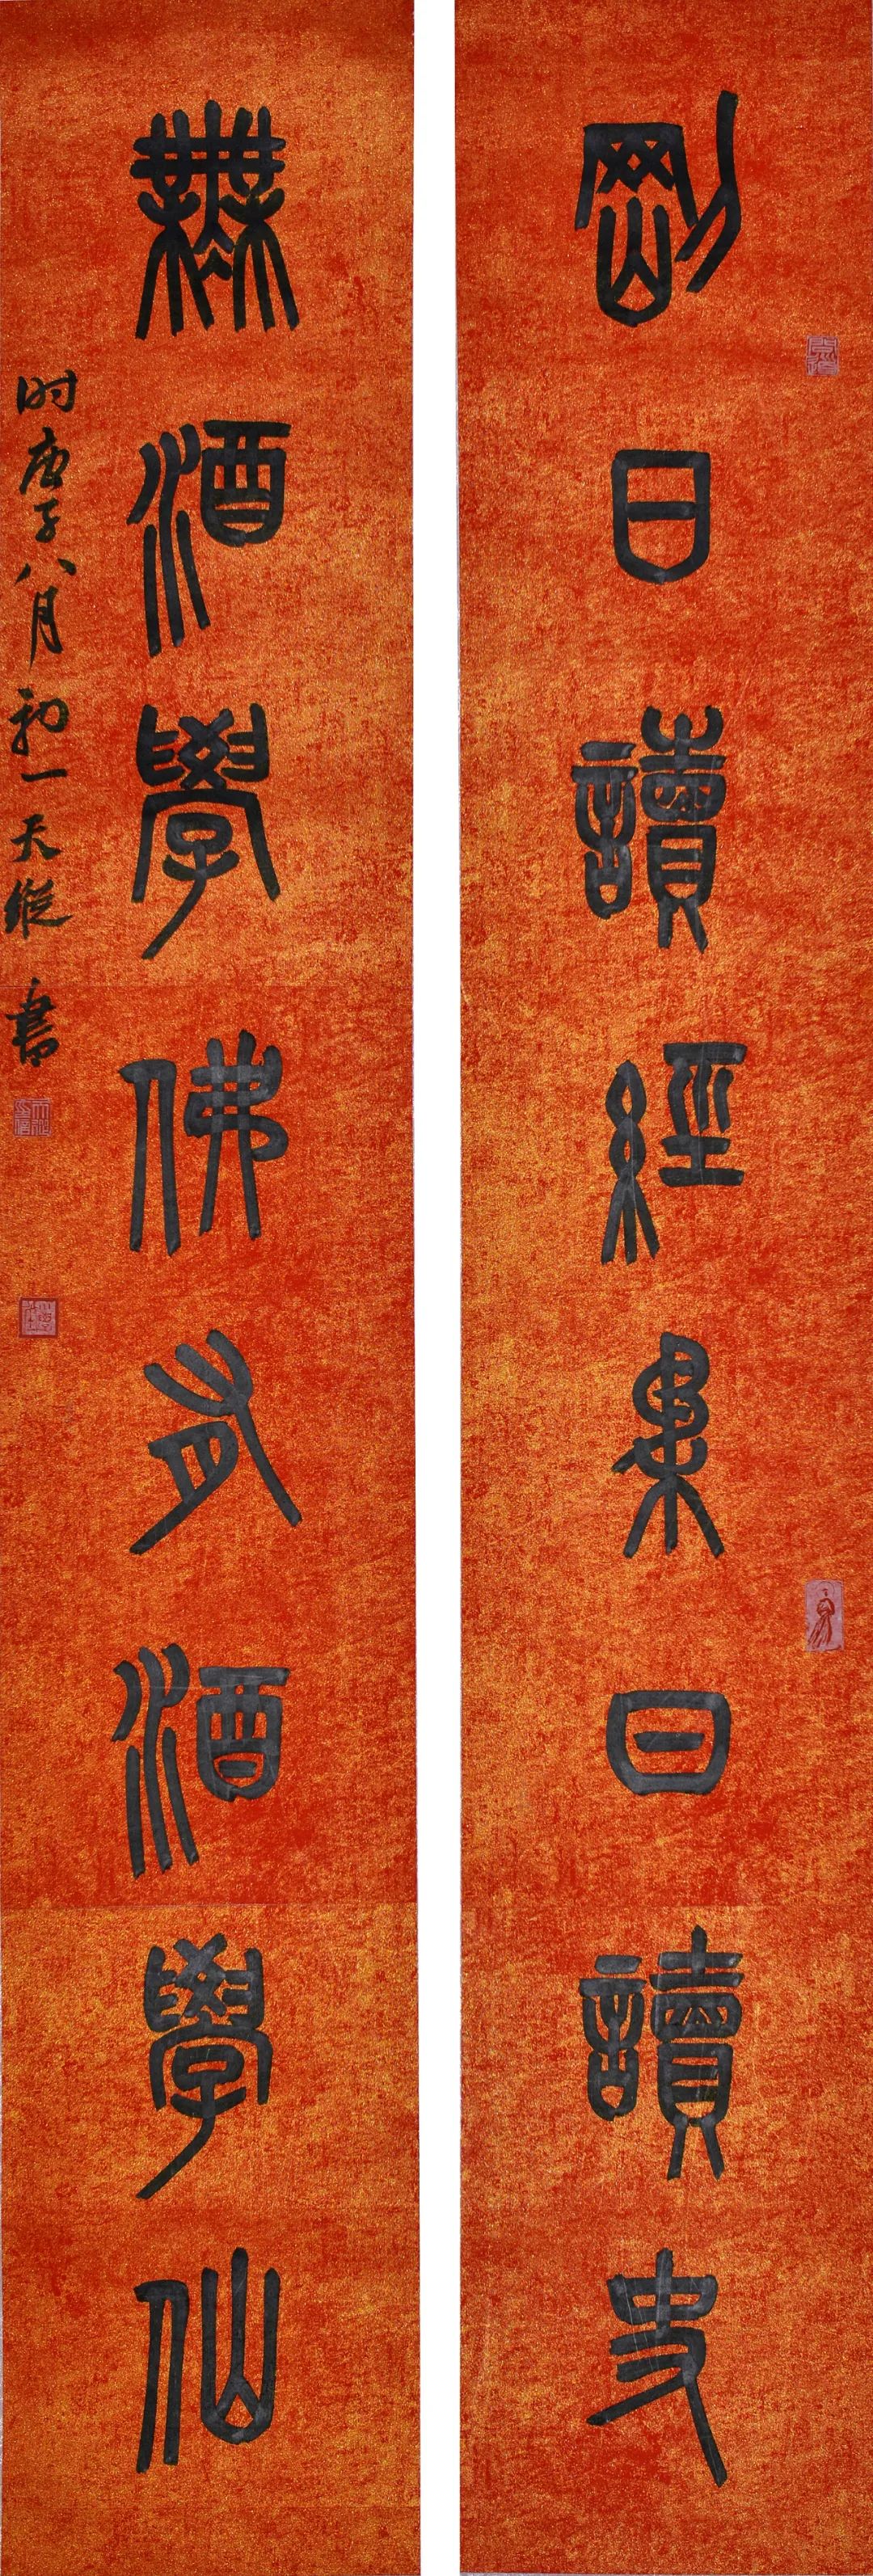 剛日讀經柔日讀史
無酒學佛有酒學仙
时庚子八月初一天縱書